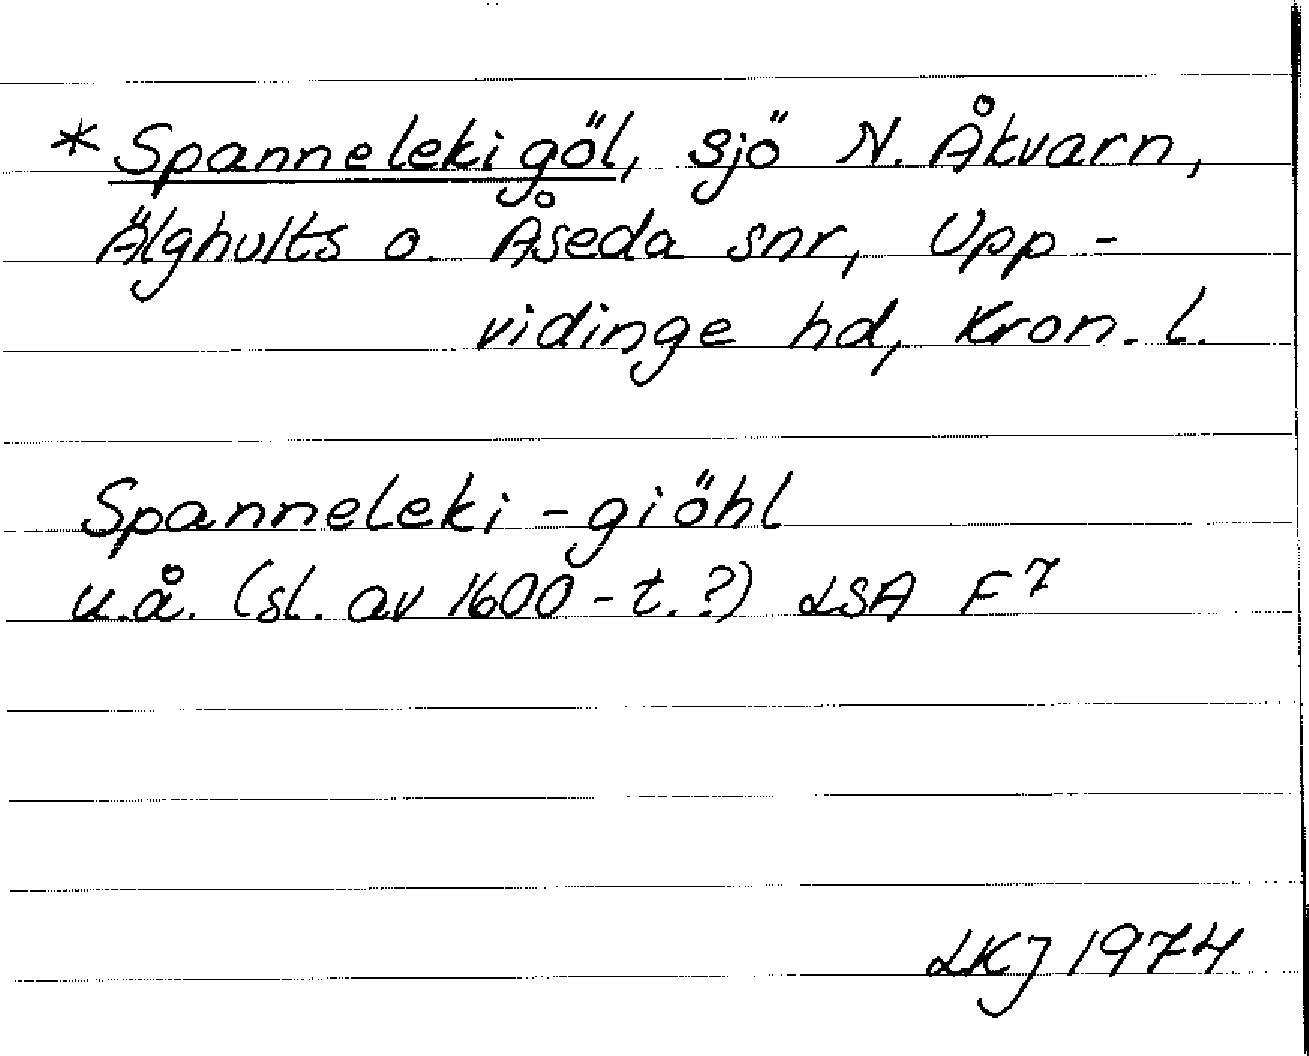 * Spannelekigöl, sjö N. Åkvarn,
Älghults o. Åseda snr, Upp-
vidinge hd, Kron. l.
Spanneleki-giöhl
u.å. (sl. av 1600-t.?) LSA F7
LKJ 1974